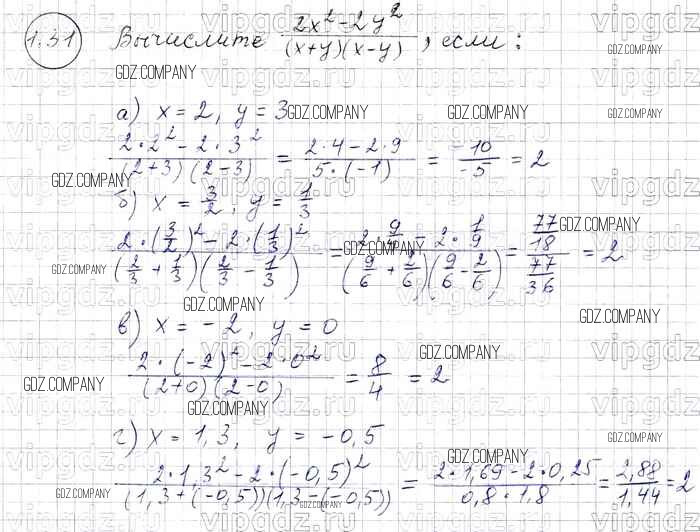 1.31 Вычислите (2x² - 2y²)/((x+y)(x-y)), если:
GDZ.COMPANY
а) x = 2, y = 3
(2·2² - 2·3²)/((2+3)(2-3)) = (2·4 - 2·9)/(5·(-1)) = (-10)/(-5) = 2
б) x = 3/2, y = 1/3
(2·(3/2)² - 2·(1/3)²)/((2/3 + 1/3)(2/3 - 1/3)) = (2·9/4 - 2·1/9)/((9/6 + 2/6)(9/6 - 2/6)) = (77/18)/(77/36) = 2
в) x = -2, y = 0
(2·(-2)² - 2·0²)/((2+0)(2-0)) = 8/4 = 2
г) x = 1,3, y = -0,5
(2·1,3² - 2·(-0,5)²)/((1,3 + (-0,5))(1,3 - (-0,5))) = (2·1,69 - 2·0,25)/(0,8·1,8) = 2,88/1,44 = 2
vipgdz.ru